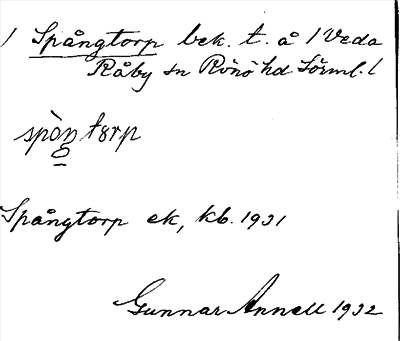 / Spångtorp bek. t. å 1 Veda
Råby sn Rönö hd Sörml. /
spὸŋ torp
Spångtorp ek, kb. 1931
Gunnar Annell 1932